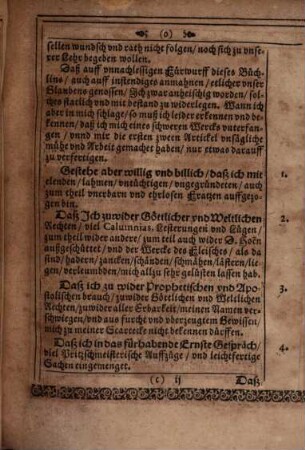 (o)
sellen wundsch vnd rath nicht folgen / noch sich zu vnse-
rer Lehr begeben wollen.
Daß auff vnnachlessigen Fürwurff dieses Büch-
lins / auch auff instendiges anmahnen / etlicher vnser
Glaubens genossen / Ich zwar anheischig worden / sol-
ches statlich vnd mit bestand zu widerlegen. Wann ich
aber in mich schlage / so muß ich leider erkennen vnd be-
kennen / daß ich mich eines schweren Wercks vnterfan-
gen / vnnd mir die ersten zween Artikel vnsägliche
mühe vnd Arbeit gemachet haben / nur etwas darauff
zu verfertigen.
Gestehe aber willig vnd billich / daß ich mit 1.
elenden / lahmen / vntüchtigen / vngegründeten / auch
zum theil vnerbarn vnd ehrlosen Fratzen auffgezo-
gen bin.
Daß Ich zuwider Göttlicher vnd Weltlichen 2.
Rechten / viel Calumnias, Lesterungen vnd Lügen /
zum theil wider andere / zum teil auch wider D. Hoën
außgeschüttet / vnd der Wercke des Fleisches / als da
sind / hadern / zancken / schänden / schmähen / lästern / lie-
gen / verleumbden / mich allzu sehr gelüsten lassen hab.
Daß ich zu wider Prophetischen vnd Apo- 3.
stolischen brauch / zuwider Götlichen vnd Weltlichen
Rechten / zuwider aller Erbarkeit / meinen Namen ver-
schwiegen / vnd aus furcht vnd vberzeugtem Gewissen /
mich zu meiner Scarteken nicht bekennen dürffen.
Daß ich in das fürhabende Ernste Gespräch / 4.
viel Pritzschmeisterische Auffzüge / vnd leichtfertige
Sachen eingemenget.
(c) ij Daß